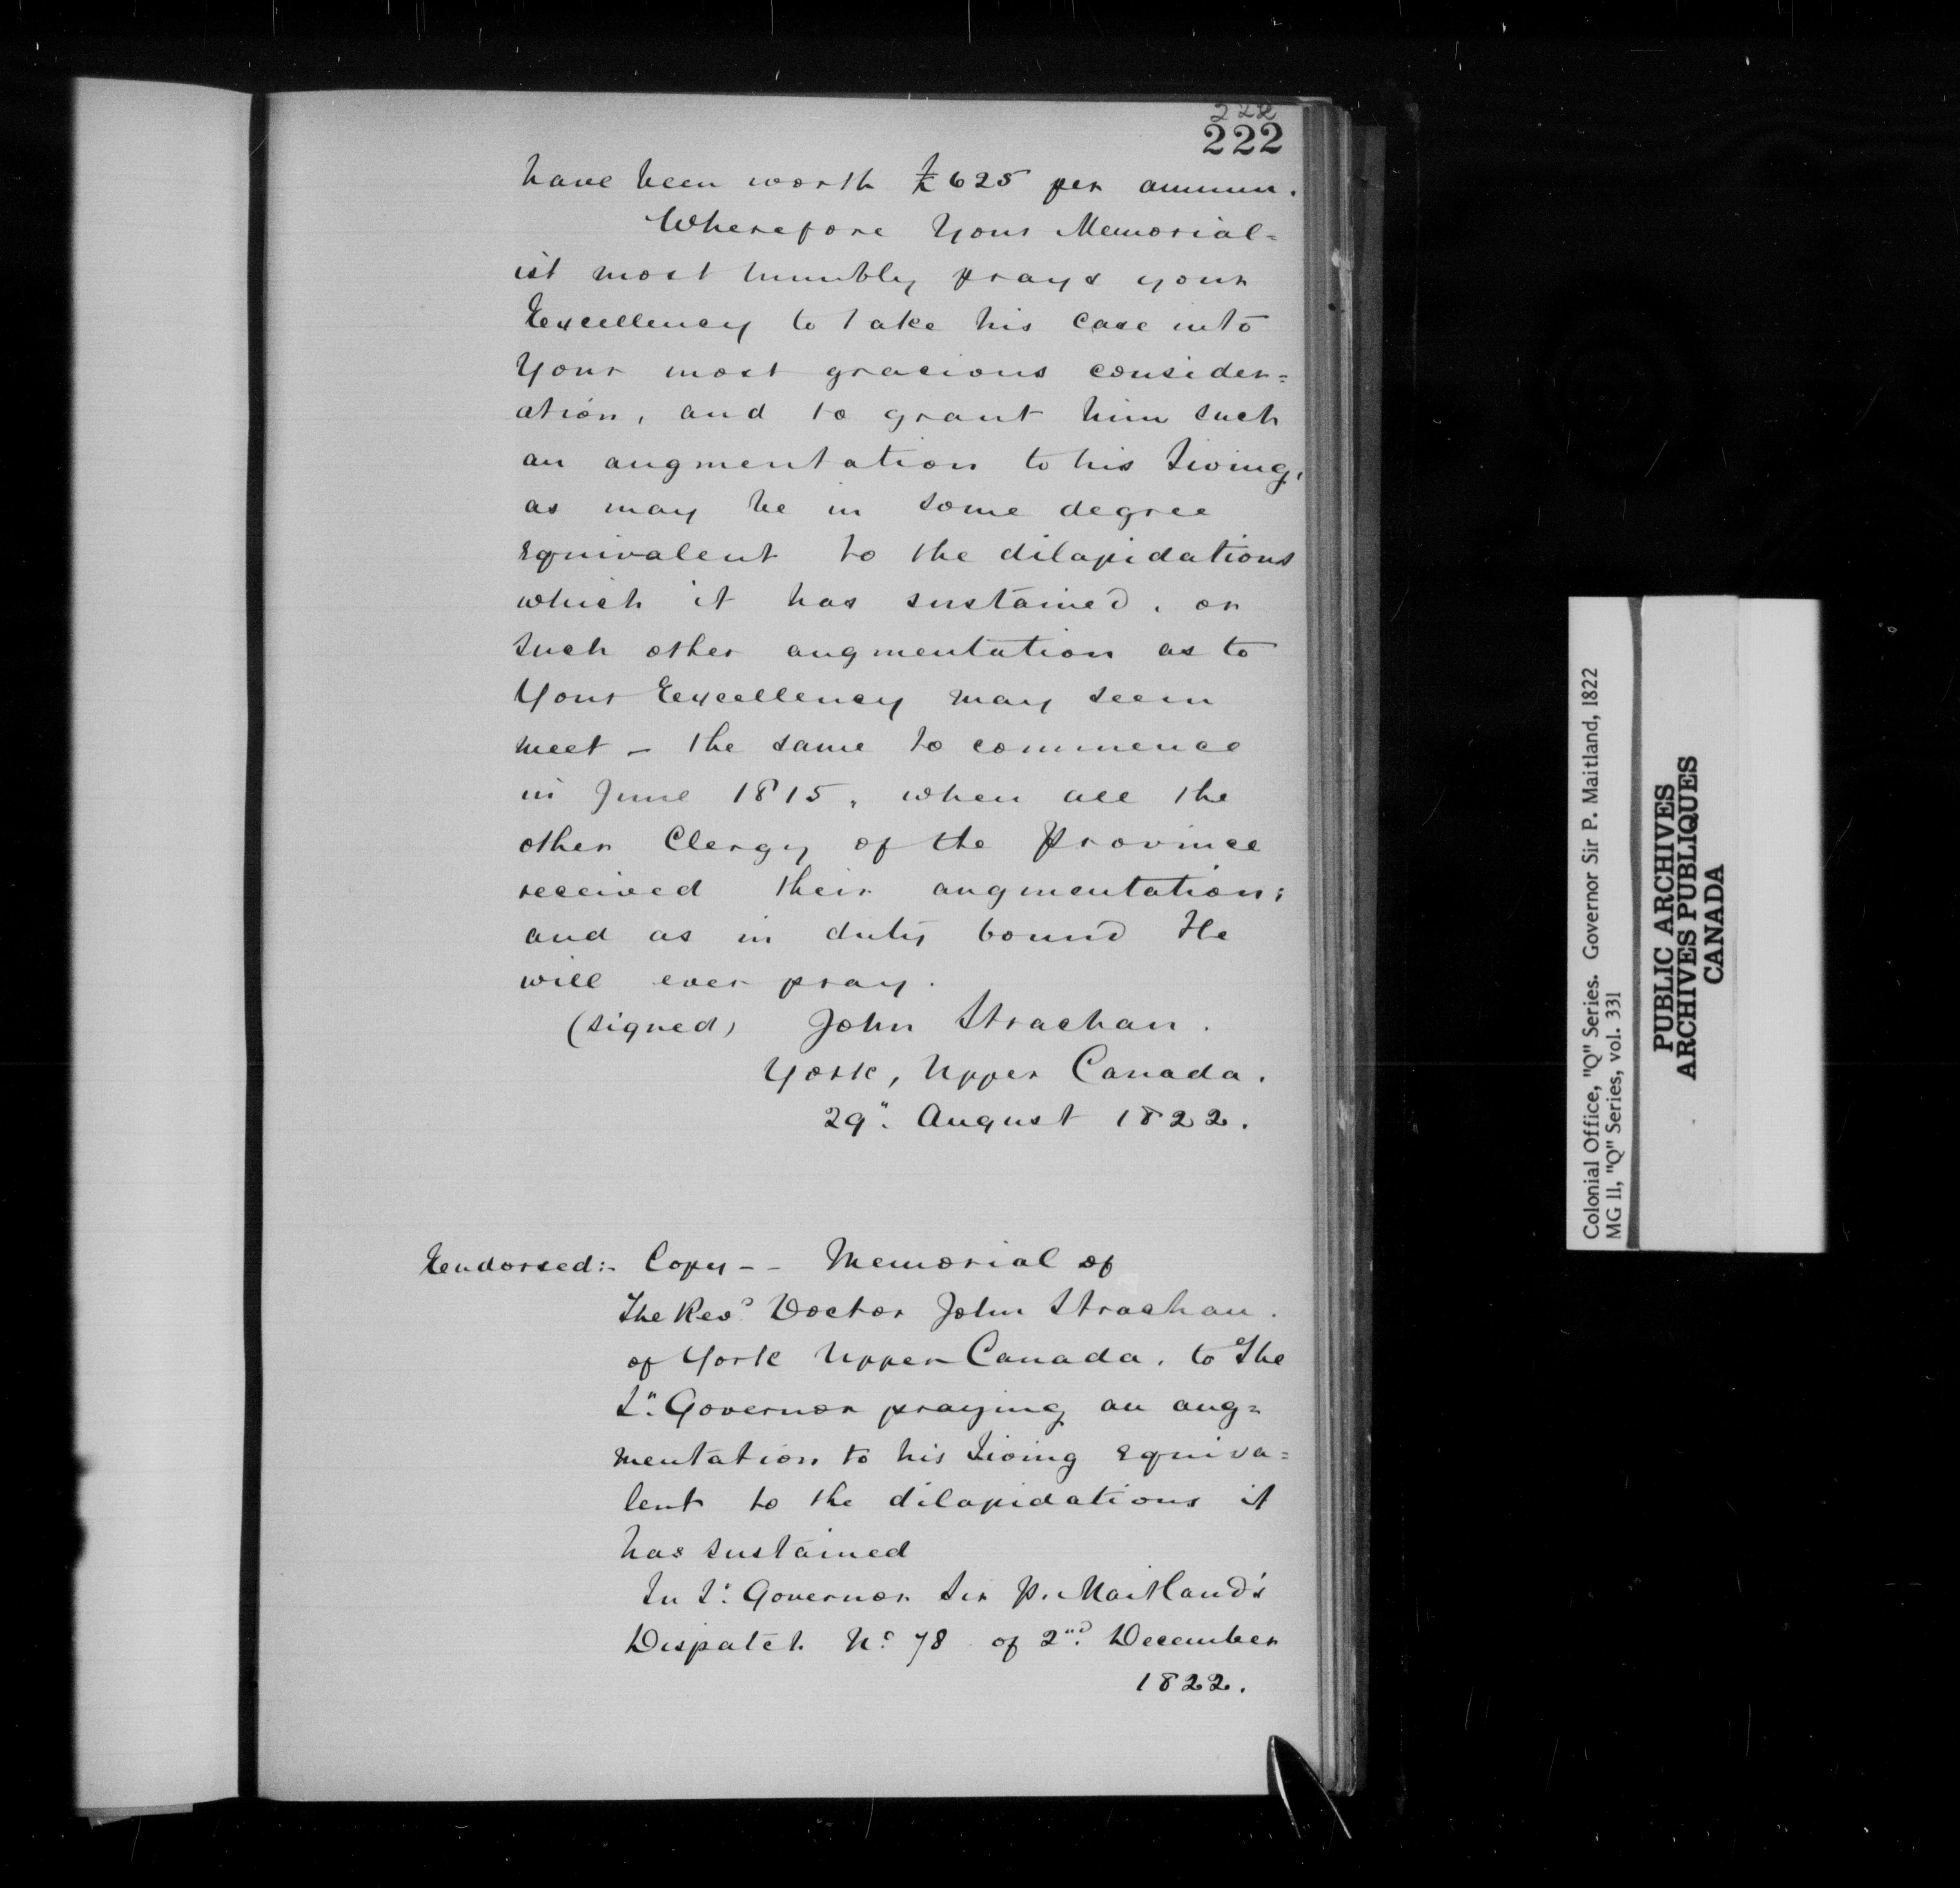 222
222
have been worth £625 per annum.
Wherefore Your Memorial=
ist most humbly prays your
Excellency to take his case into
Your most gracious consider=
ation, and to grant him such
an augmentation to his Living,
as may be in some degree
equivalent to the dilapidations
which it has sustained, or
such other augmentation as to
Your Excellency may seem
meet - the same to commence
in June 1815, when all the
other Clergy of the Province
received their augmentation;
and as in duty bound He
will ever pray.
(signed) John Strachan.
York, Upper Canada.
29". August 1822.
Endorsed:- Copy - - Memorial of
The Revd Doctor John Strachan.
of York Upper Canada, to The
Lt. Governor praying an aug=
mentation to his Living equiva=
lent to the dilapidations it
has sustained
In Lt. Governor Sir P. Maitland's
Dispatch No 78 of 2nd December
1822.
Colonial Office, "Q" Series. Governor Sir P. Maitland, 1822
MG 11, "Q" Series, vol. 331
PUBLIC ARCHIVES
ARCHIVES PUBLIQUES
CANADA